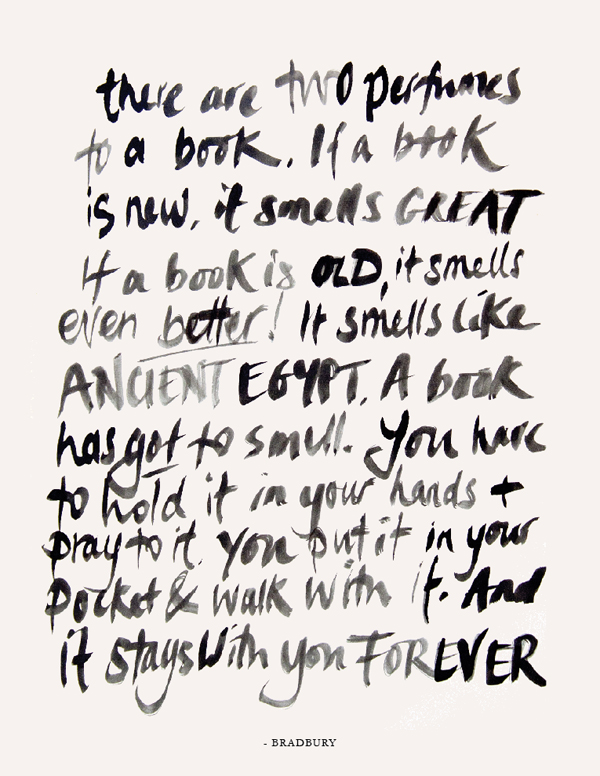 there are two perfumes
to a book. If a book
is new, it smells GREAT
If a book is OLD, it smells
even better! It smells like
ANCIENT EGYPT. A book
has got to smell. You have
to hold it in your hands +
pray to it. You put it in your
pocket & walk with it. And
it stays with you FOREVER
- BRADBURY